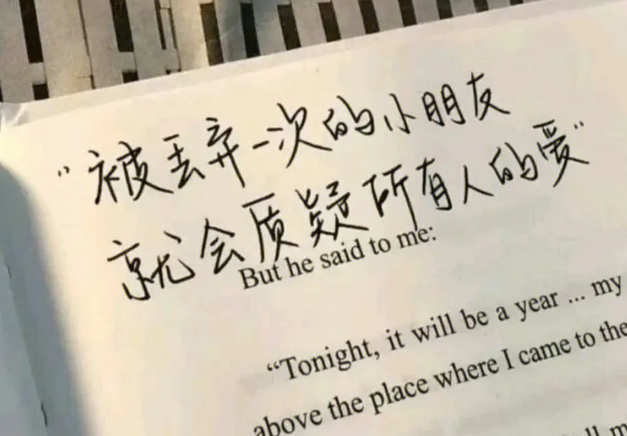 “被丢弃一次的小朋友
就会质疑所有人的爱”
But he said to me:
“Tonight, it will be a year ... my
above the place where I came to the